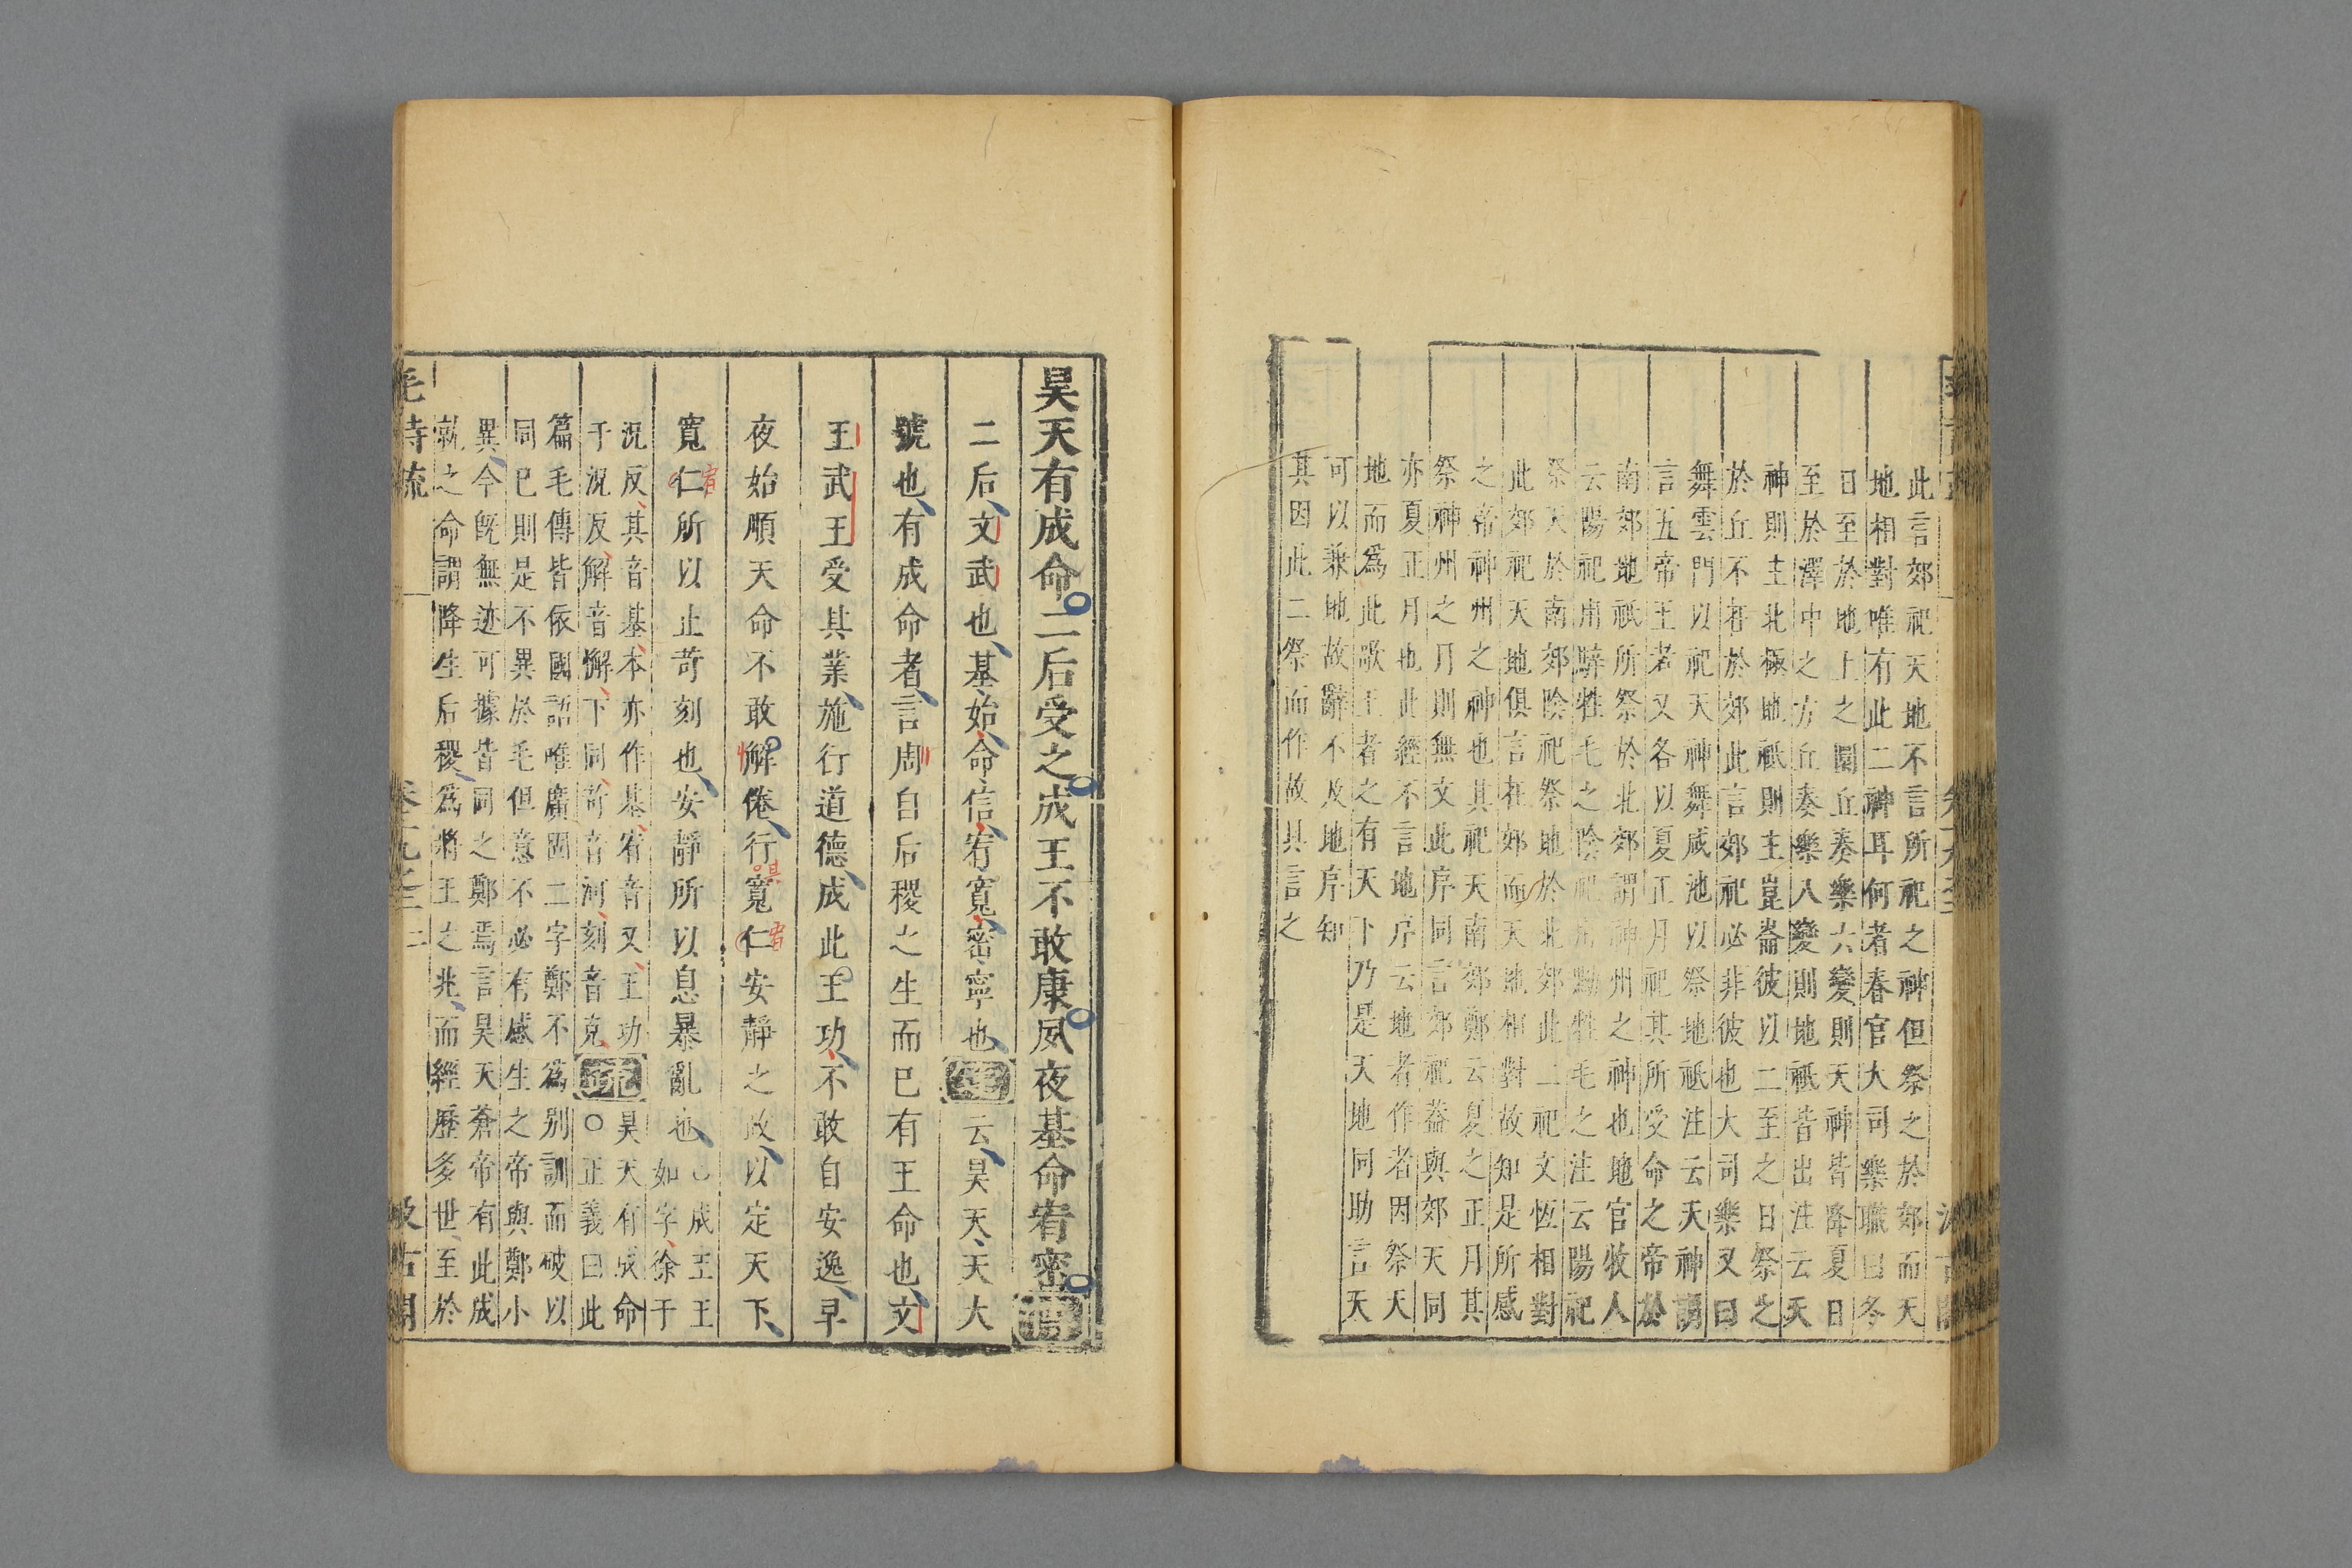 此言郊祀天地不言所祀之神但祭之於郊而天
地相對唯有此二神耳何者春官大司樂職曰冬
日至於地上之圜丘奏樂六變則天神皆降夏日
至於澤中之方丘奏樂八變則地祇皆出注云天
神則主北極地祇則主崑崙彼以二至之日祭之
於丘不在於郊此言郊祀必非彼也大司樂又曰
舞雲門以祀天神舞咸池以祭地祇注云天神謂
言五帝王者又各以夏正月祀其所受命之帝於
南郊地祇所祭於北郊謂神州之神也地官牧人
云陽祀用騂牲毛之陰祀用黝牲毛之注云陽祀
祭天於南郊陰祀祭地於北郊此二祀文恆相對
此郊祀天地俱言在郊而天地相對故知是所感
之帝神州之神也其祀天南郊鄭云夏之正月其
祭神州之月則無文此序同言郊祀蓋與郊天同
亦夏正月也此經不言地序云地者作者因祭天
地而爲此歌王者之有天下乃是天地同助言天
可以兼地故辭不及地序知
其因此二祭而作故具言之
昊天有成命二后受之成王不敢康夙夜基命宥密傳
二后文武也基始命信宥寬密寧也箋云昊天天大
號也有成命者言周自后稷之生而已有王命也文
王武王受其業施行道德成此王功不敢自安逸早
夜始順天命不敢解倦行寬仁安靜之政以定天下
寬仁所以止苛刻也安靜所以息暴亂也○成王王
如字徐于
況反其音基本亦作基宥音又王功
于況反解音懈下同苛音河刻音克疏昊天有成命
○正義曰此
篇毛傳皆依國語唯廣固二字鄭不爲別訓而破以
同已則是不異於毛但意不必有感生之帝與鄭小
異今既無迹可據皆同之鄭焉言昊天蒼帝有此成
就之命謂降生后稷爲將王之兆而經歷多世至於
毛詩疏
汲古閣